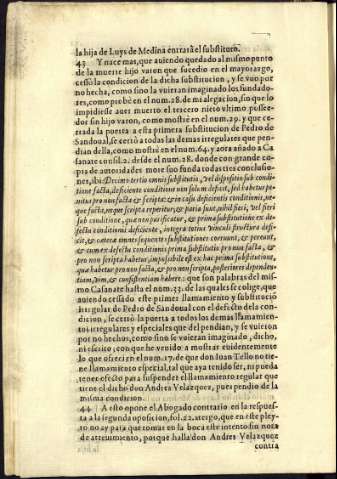 la hija de Luys de Medina entrara el substituto.
43 Y nace mas, que auiendo quedado al mismo punto
de la muerte hijo varon que sucedio en el mayorazgo,
cessò la condicion de la dicha substitucion, y se vuo por
no hecha, como sino la vuieran imaginado los fundado-
res, como prouè en el num. 28. de mi alegacion, sin que lo
impidiesse auer muerto el tercero nieto vltimo posseedor
sin hijo varon, como mostrè en el num. 29. y que cer-
rada la puerta a esta primera substitucion de Pedro de
Sandoual, se cerrò a todas las demas irregulares que pen-
dian della, como mostrè en el num. 64. y aora añado a Ca-
sanate consil. 2. desde el num. 28. donde con grande co-
pia de autoridades more suo funda todas tres conclusio-
nes, ibi: Decimo tertio omnis substitutio, vel dispositio sub condi-
tione facta, deficiente conditione non solum deficit, sed habetur pe-
nitus pro non facta & scripta: & in casu deficientis conditionis, ne-
que facta, neque scripta reperitur, & paria sunt, nihil fieri, vel fieri
sub conditione, quæ non purificatur, & prima substitutione ex de-
fectu conditionis deficiente, integra totius vinculi structura defi-
cit, & cæteræ omnes sequentes substitutiones corruunt, & pereunt,
& cum ex defectu conditionis prima substitutio pro non facta, &
pro non scripta habetur, impossibile est ex hac prima substitutione,
quæ habetur pro non facta, & pro non scripta, posteriores dependen-
tiam, vim, & consistentiam habere: que son palabras del mis-
mo Casanate hasta el num. 33. de las quales se colige, que
auiendo cessado este primer llamamiento y substitució
irregular de Pedro de Sandoual con el defecto de la con-
dicion, se cerrò la puerta a todos los demas llamamien-
tos irregulares y especiales que del pendian, y se vuieron
por no hechos, como sino se vuieran imaginado, dicho,
ni escrito; con que he venido a mostrar euidentemente
lo que ofreci en el num. 17. de que don Iuan Tello no tie-
ne llamamiento especial, tal que aya tenido ser, ni pueda
tener efecto para suspender el llamamiento regular que
tiene el dicho don Andres Velazquez, pues pendio de la
misma condicion.
44 A esto opone el Abogado contrario en la respues-
ta a la segunda oposicion, fol. 22. vtergo, que en este pley-
to no ay para que tomar en la boca este intento sin nota
de atreuimiento, porque halla don Andres Velazquez
contra